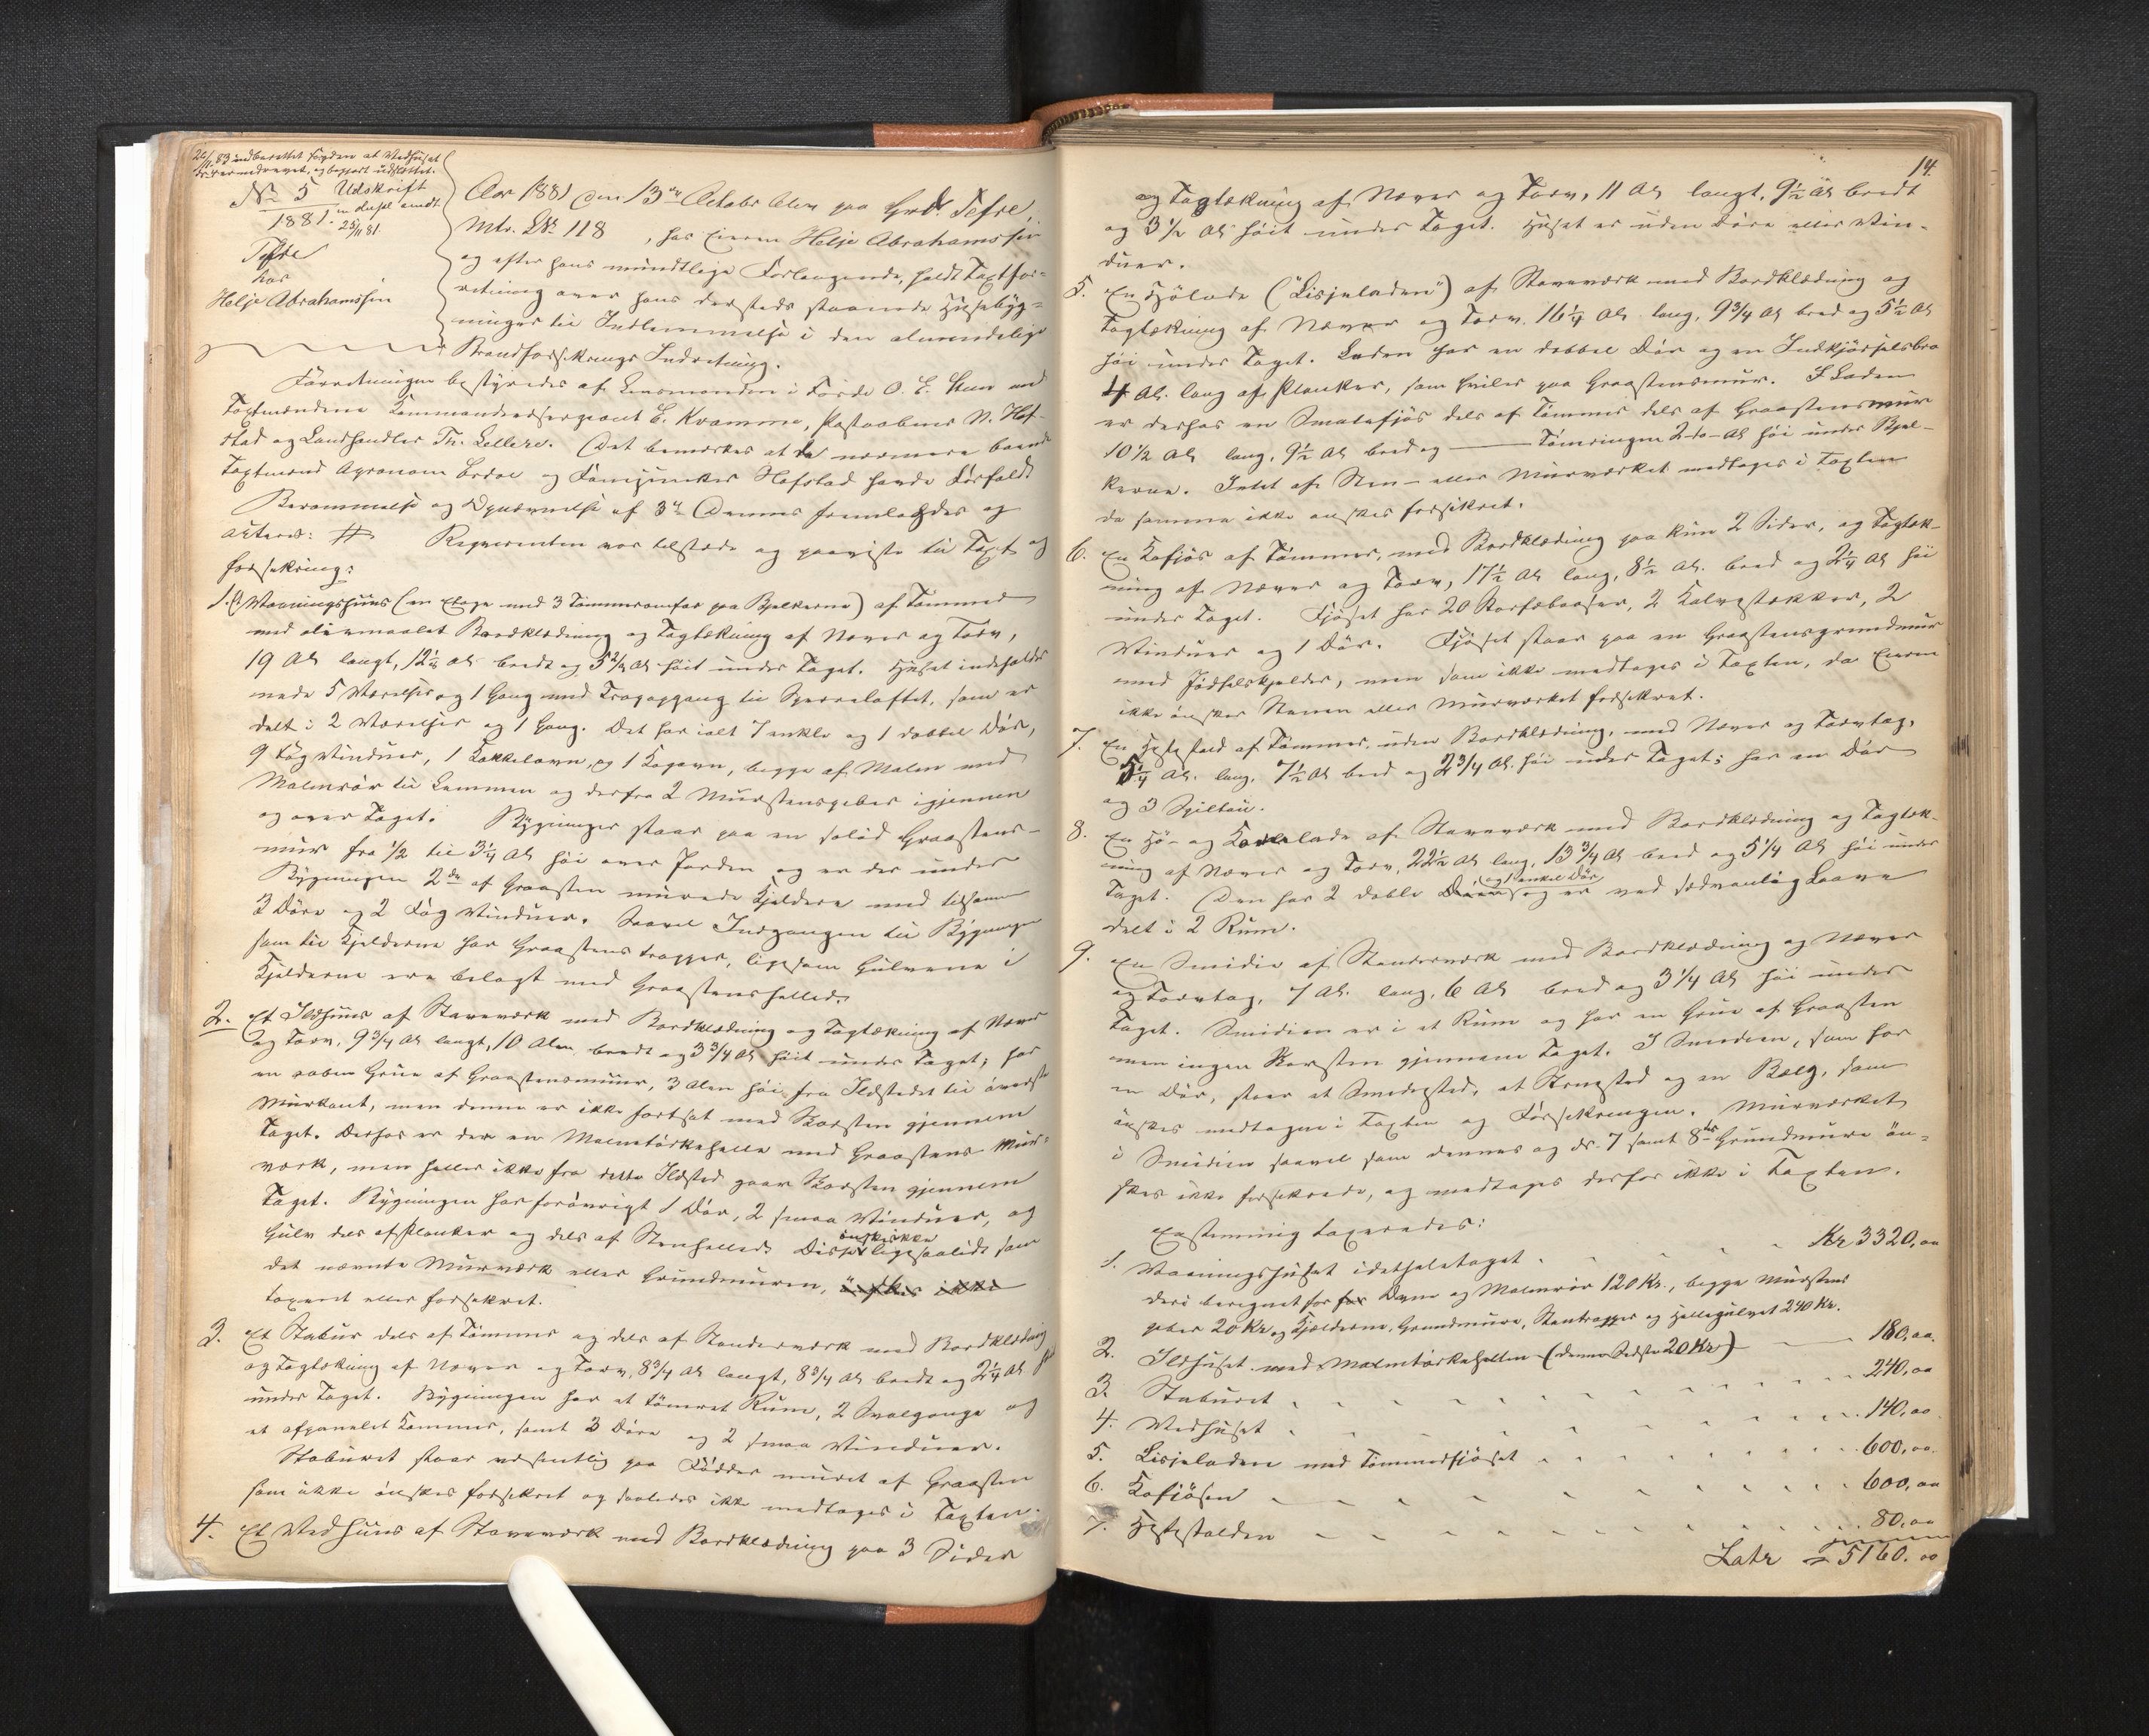 24/11 83 indberettet Fogden at Vedhuset
No 4 er nedrevet, og begjært udslettet.
No 5 Udskrift
1881. in dupl. sendt
25/11 81.
Tefre
hos
Helje Abrahamssøn
Aar 1881 den 13de October blev paa Grd. Tefre,
Mtr. No 118, hos Eieren Helje Abrahamssøn
og efter hans mundtlige Forlangende, holdt Taxtfor-
retning over hans dersteds staaende Husebyg-
ninger til Indlemmelse i den almindelige
Brandforsikrings Indretning.
Forretningen bestyredes af Lensmanden i Førde O. E. Steen med
Taxtmændene Kommandeersergeant E. Kvamme, Postaabner N. Hof-
stad og Landhandler Th. Sellere. Det bemærkes at de nærmere boende
Taxtmænd Agronom Erdal og Hofstad havde Forfald.
Berammelse og Opnævnelse af 3de Dennes fremlagdes og
acteres: # Requirenten var tilstede og paaviste til Taxt og
forsikring:
1. Et Vaaningshuus (en Etage med 3 Tømmeromfar paa Bjelkerne) af Tømmer
med oliemaalet Bordklædning og Tagtækning af Næver og Torv,
19 Al. langt, 12 1/4 al. bredt og 5 2/4 Al. høit under Taget. Huset indeholder
nede 5 Værelser og 1 Gang med Trapopgang til Sperreloftet, som er
delt i 2 Værelser og 1 Gang. Det har ialt 7 enkle og 1 dobbel Dør,
9 Fag Vinduer, 1 Kakkelovn, og 1 Kogovn, begge af Malm med
Malmrør til Lemmen og derfra 2 Murstenspiber igjennem
og over Taget. Bygningen staar paa en solid Graastens-
mur fra 1/2 til 3 1/4 Al. høi over Jorden og er der under
Bygningen 2de af Graasten murede Kjeldere med tilsammen
3 Døre og 2 Fag Vinduer. Saavel Indgangen til Bygningen
som til Kjelderne har Graastenstrapper, ligesom Gulvene i
Kjelderne ere belagt med Graastenshelled.
2. Et Ildhuus af Staveværk med Bordklædning og Tagtækning af Næver
og Torv, 9 3/4 Al. langt, 10 Alen bredt og 3 3/4 Al. høit under Taget; har
en aaben Grue af Graastensmuur, 3 Alen høi fra Ildstedet til øverste
Murkant, men denne er ikke fortsat med Skorsten gjennem
Taget. Derhos er der en Malmtørkehelle med Graastens Mur-
værk, men heller ikke fra dette Ildsted gaar Skorsten gjennem
Taget. Bygningen har forøvrigt 1 Dør, 2 smaa Vinduer, og
Gulv dels af Planker og dels af Stenhelled. Disse ønskes ikke ligesaalidt som
det nævnte Murværk eller Grundmuren, ønskes ikke
taxeret eller forsikret.
3. Et Stabur dels af Tømmer og dels af Stenderværk med Bordklædning
og Tagtækning af Næver og Torv, 8 3/4 Al. langt, 8 3/4 Al. bredt og 2 1/4 Al. høit
under Taget. Bygningen har et tømret Rum, 2 Svalgange og
et afpanelet Kammer, samt 3 Døre og 2 smaa Vinduer.
Staburet staar væsentlig paa Fødder muret af Graasten
som ikke ønskes forsikret og saaledes ikke medtages i Taxten.
4. Et Vedhuus af Staveværk med Bordklædning paa 3 Sider
14.
og Tagtækning af Næver og Torv, 11 Al. langt, 9 1/2 Al. bredt
og 3 1/2 Al. høit under Taget. Huset er uden Døre eller Vin-
duer.
5. En Hølade ("Lisjeladen") af Staveværk med Bordklædning og
Tagtækning af Næver og Torv, 16 1/4 Al. lang, 9 3/4 Al. bred og 5 1/2 Al.
høi under Taget. Laden har en dobbel Dør og en Indkjørselsbro
4 Al. lang af Planker, som hviler paa Graastensmur. I Laden
er derhos en Smalefjøs dels af Tømmer dels af Graastensmur
10 1/2 Al. lang, 9 1/2 Al. bred og — Tømringen 2 — do — Al. høi under Bjel-
kerne. Intet af Sten- eller Murværket medtages i Taxten
da samme ikke ønskes forsikret.
6. En Kofjøs af Tømmer, med Bordklædning paa kun 2 Sider, og Tagtæk-
ning af Næver og Torv, 17 1/2 Al. lang, 8 1/2 Al. bred og 2 1/4 Al. høi
under Taget. Fjøset har 20 Storfebaaser, 2 Kalvestækker, 2
Vinduer og 1 Dør. Fjøset staar paa en Graastensgrundmur
med Gjødselskjelder, men som ikke medtages i Taxten, da Eieren
ikke ønsker Stenen eller Murværket forsikret.
7. En Hestestald af Tømmer, uden Bordklædning, med Næver og Torvtag,
5 1/4 Al. lang, 7 1/2 Al. bred og 2 3/4 Al. høi under Taget; har en Dør
og 3 Spiltau.
8. En Hø- og Kornlade af Staveværk med Bordklædning og Tagtæk-
ning af Næver og Torv, 22 1/2 Al. lang, 13 3/4 Al. bred og 5 1/4 Al. høi under
Taget. Den har 2 doble Døre og 1 enkel Dør, og er ved sædvanlig Laave
delt i 2 Rum.
9. En Smidie af Stenderværk med Bordklædning og Næver
og Torvtag, 7 Al. lang, 6 Al. bred og 3 1/4 Al. høi under
Taget. Smidien er i et Rum og har en Grue af Graasten
men ingen Skorsten gjennem Taget. I Smidien, som har
en Dør, staar et Smedested, et og en Bælg, som
ønskes medtagne i Taxten og Forsikringen. Murværket
i Smidien saavel som dennes og No. 7 samt 8des Grundmure øn-
skes ikke forsikrede, og medtages derfor ikke i Taxten.
Enstemmig taxeredes:
1. Vaaningshuset idetheletaget . . . . Kr 3320,00
deri beregnet for for Ovne og Malmrør 120 Kr., begge Murstens
piber 20 Kr. og Kjælderne, Grundmure, Stentrapper og Hellegulvet 240 Kr.
2. Ildhuset med Malmtørkehellen (denne Sidste 20 Kr) — 180,00.
3. Staburet . . . . 240,00
4. Vedhuset . . . . 140,00.
5. Lisjeladen med Tømmerfjøset . . . . 600,00.
6. Kofjøsen . . . . 600,00
7. Hestestalden . . . . 80,00
Latr 5160.00